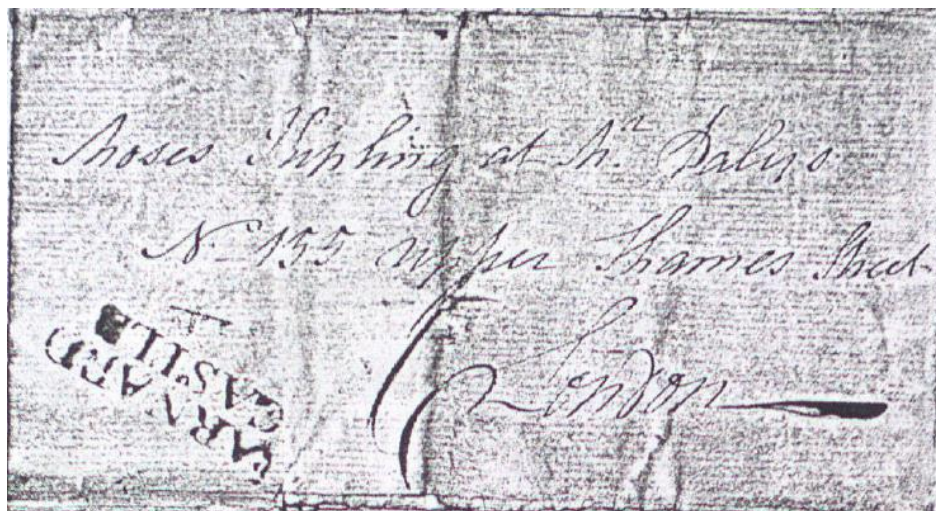 Moses Kipling at Mr. Dalys
No 155 upper Thames Street
London
BARNARD
CASTLE